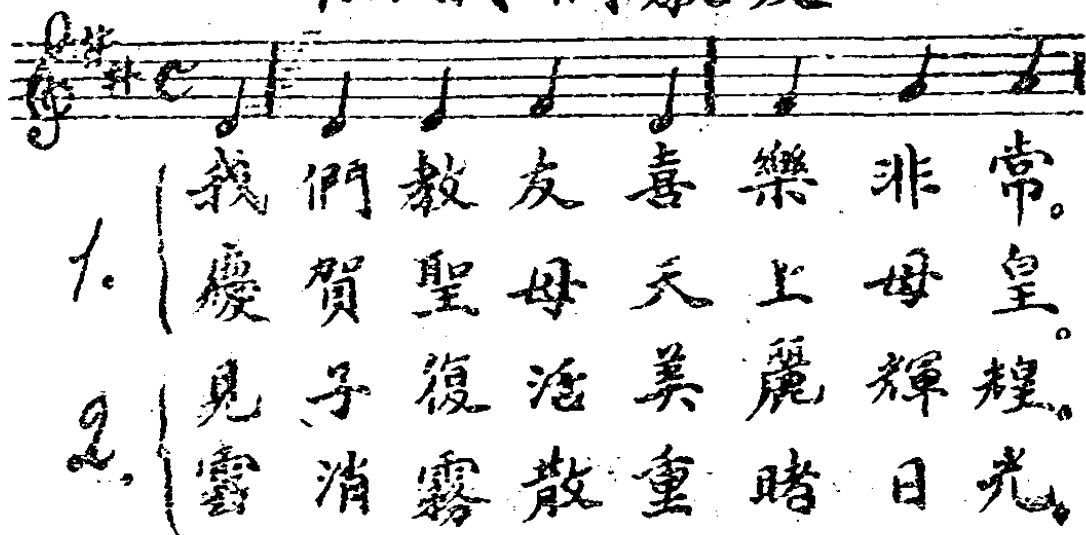 我們教友喜樂非常。
1. 慶賀聖母天上母皇。
見子復活美麗輝煌。
2. 雲消霧散重睹日光。